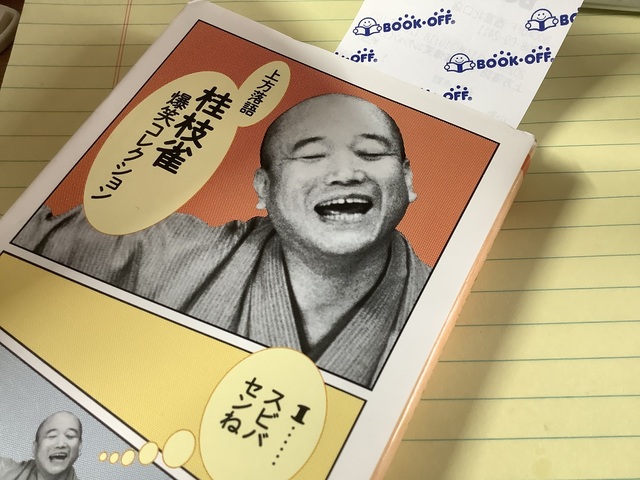 上方落語
桂枝雀
爆笑コレクション
1……
スビバ
センね
BOOK·OFF
BOOK·OFF
BOOK·OFF